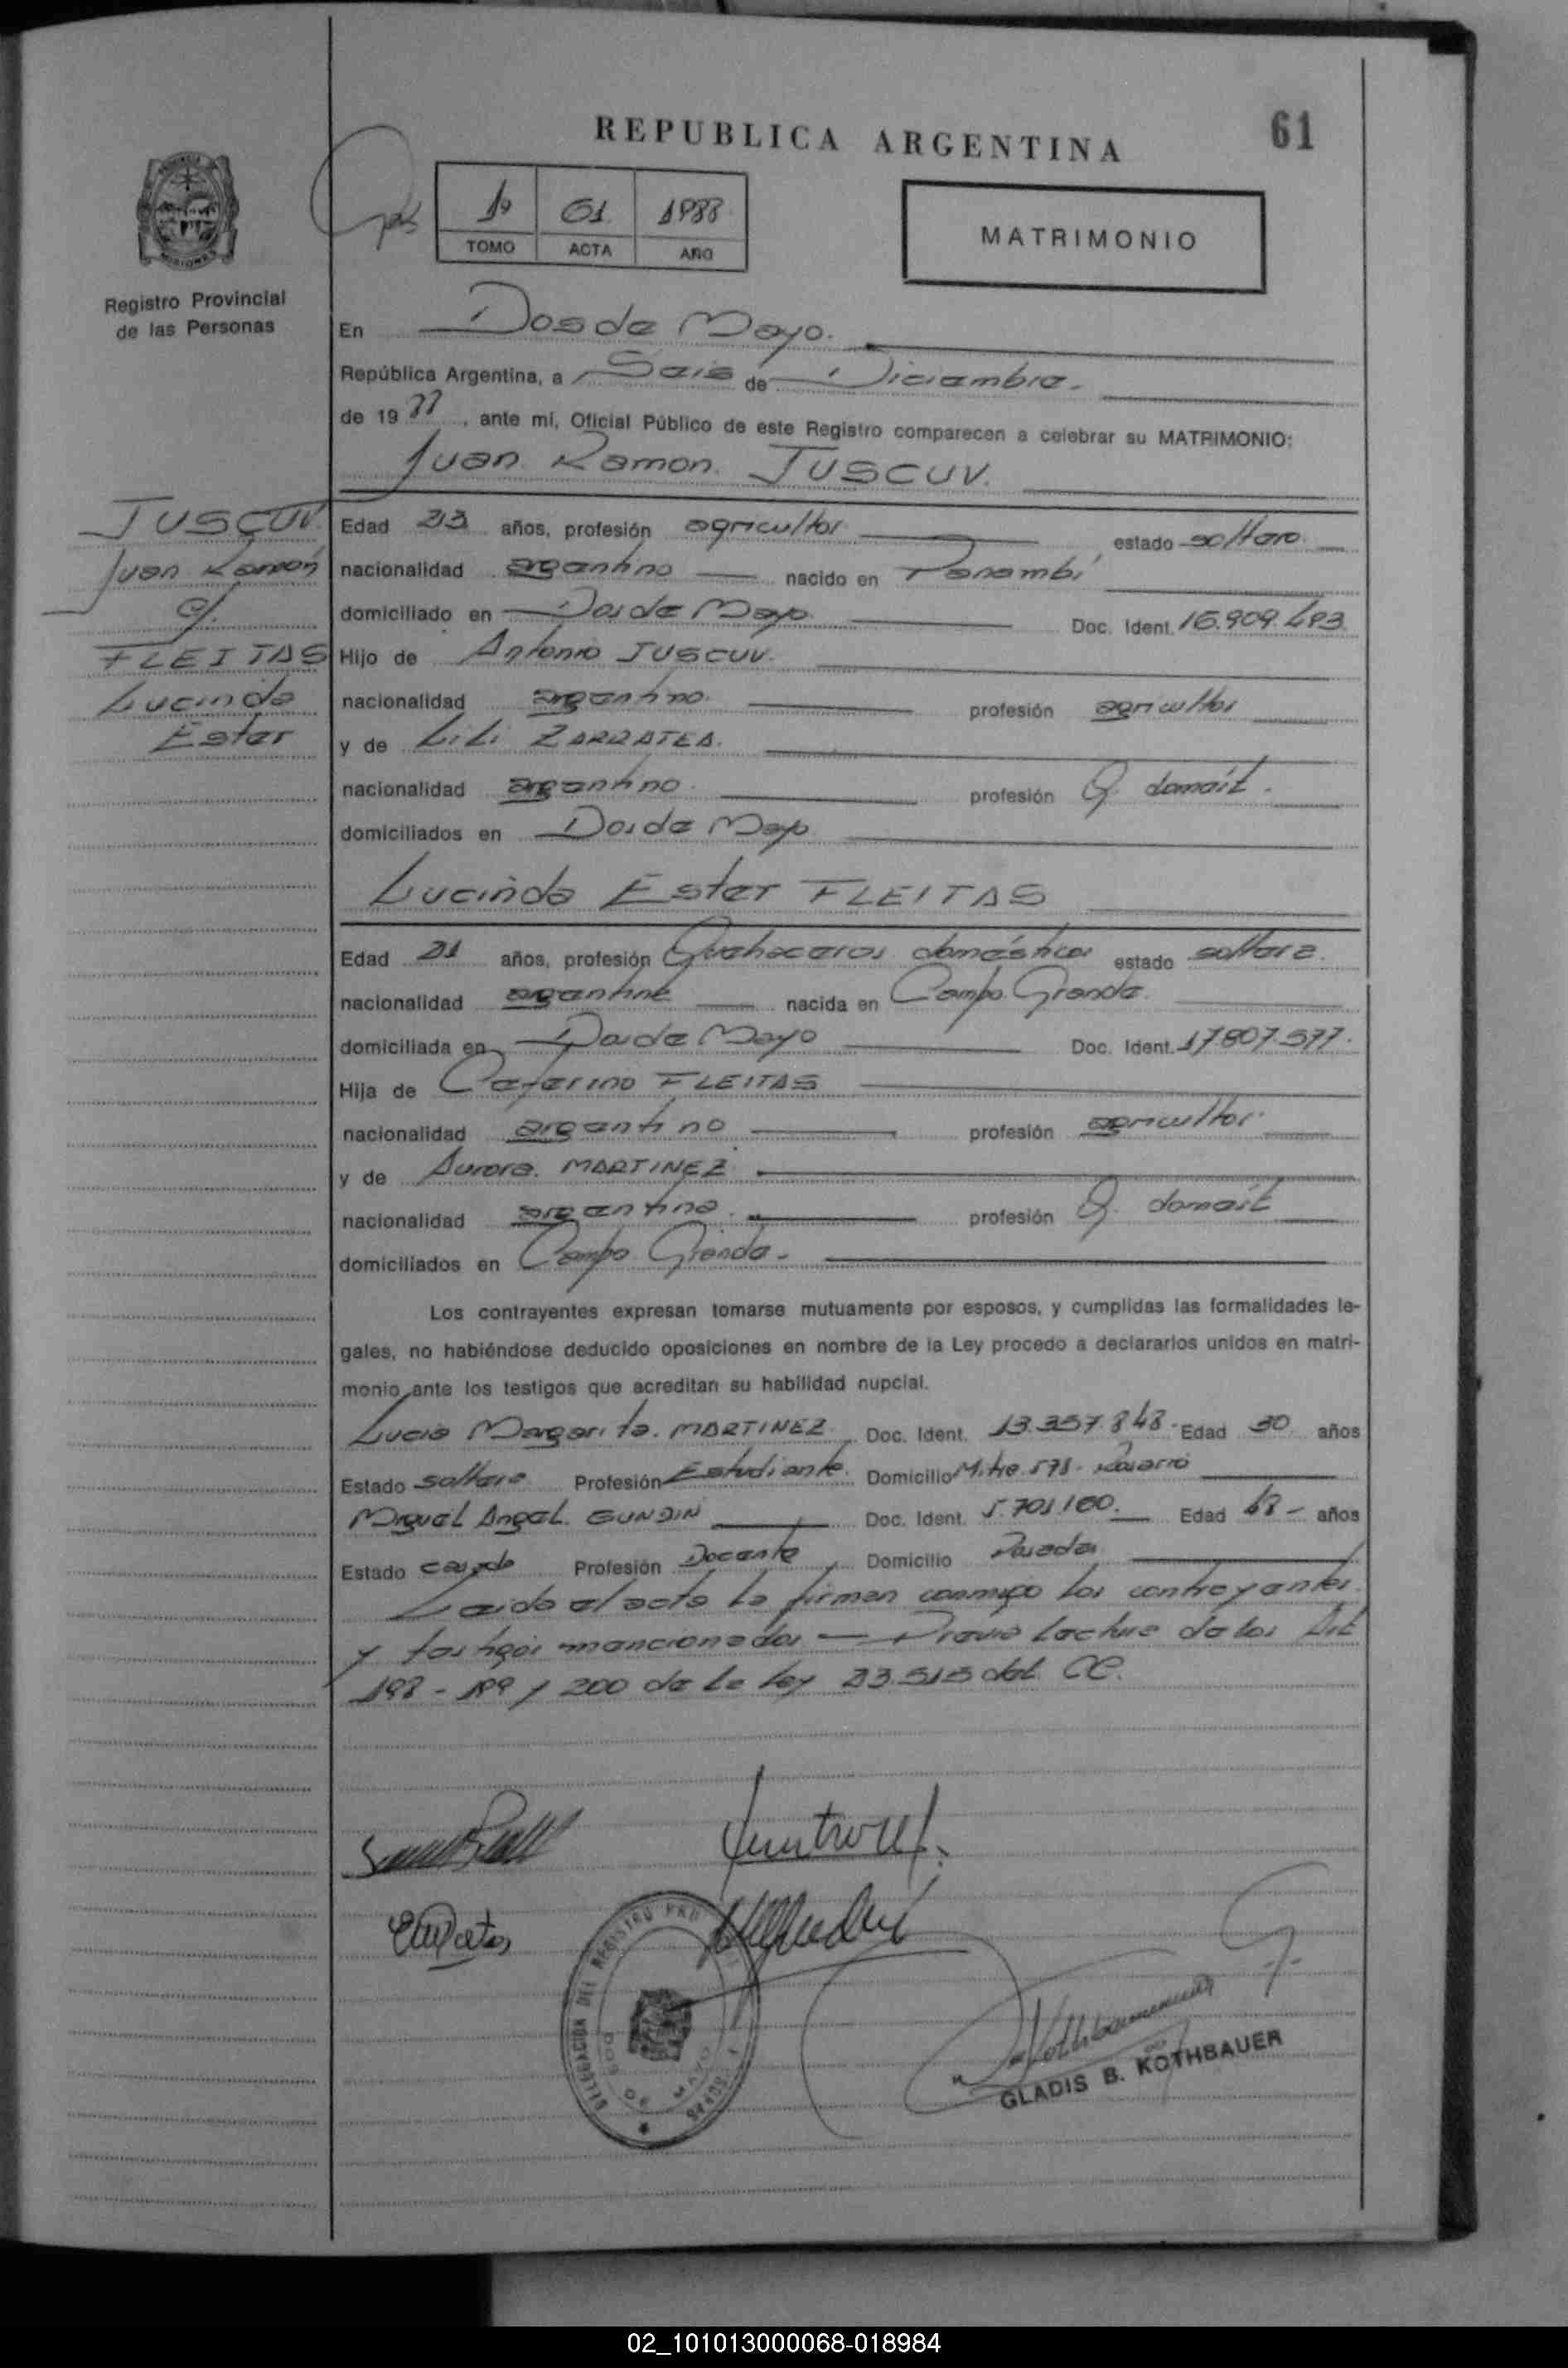 REPUBLICA ARGENTINA
61
1º 61 1988
TOMO ACTA AÑO
MATRIMONIO
Registro Provincial
de las Personas
En Dos de Mayo.
República Argentina, a Seis de Diciembre.
de 19 88, ante mí, Oficial Público de este Registro comparecen a celebrar su MATRIMONIO:
Juan Ramon JUSCUV.
JUSCUV.
Juan Ramón
c/.
FLEITAS
Lucinda
Ester
Edad 23 años, profesión agricultor estado soltero
nacionalidad argentino nacido en Panambí
domiciliado en Dos de Mayo Doc. Ident. 16.909.493
Hijo de Antonio JUSCUV.
nacionalidad argentino profesión agricultor
y de Lili ZARRATEA.
nacionalidad argentino. profesión Q. domést.
domiciliados en Dos de Mayo
Lucinda Ester FLEITAS
Edad 21 años, profesión Quehaceres domésticos estado soltera.
nacionalidad argentina nacida en Campo Grande.
domiciliada en Dos de Mayo Doc. Ident. 17.807.577.
Hija de Ceferino FLEITAS
nacionalidad argentino profesión agricultor.
y de Aurora. MARTINEZ
nacionalidad argentina. profesión Q. domést
domiciliados en Campo Grande.
Los contrayentes expresan tomarse mutuamente por esposos, y cumplidas las formalidades le-
gales, no habiéndose deducido oposiciones en nombre de la Ley procedo a declararlos unidos en matri-
monio ante los testigos que acreditan su habilidad nupcial.
Lucia Margarita. MARTINEZ Doc. Ident. 13.357.848. Edad 30 años
Estado soltera Profesión Estudiante. Domicilio Mitre 578 - Rosario
Miguel Angel. GUNDIN Doc. Ident. 5.701.160. Edad años
Estado casado Profesión Docente Domicilio Posadas
Leída el acta la firman conmigo los contrayentes.
y testigos mencionados — Previa lectura de los Art
198 - 199 y 200 de la ley 23.515 del CC.
DELEGACION DEL REGISTRO PROV
DOS DE MAYO
GLADIS B. KOTHBAUER
02_101013000068-018984